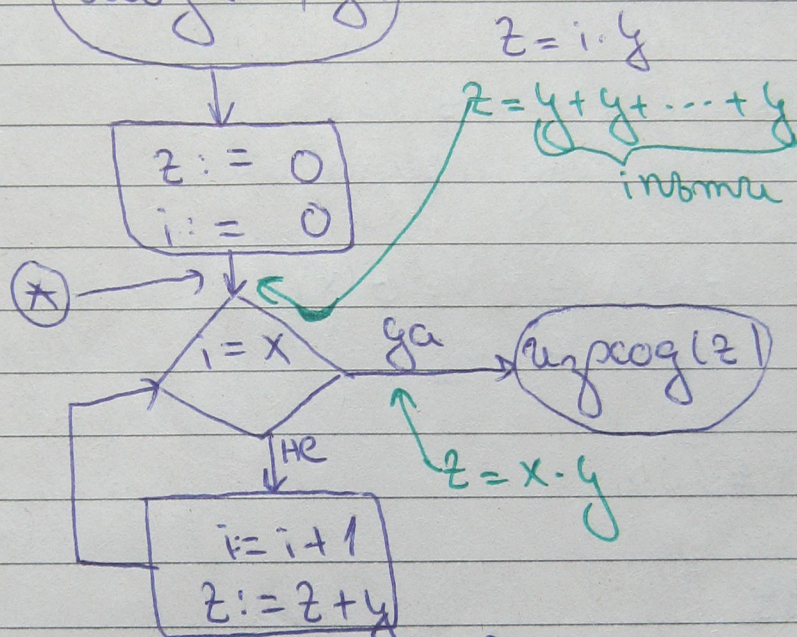 z = i · y
z = y + y + ... + y
i пъти
z := 0
i := 0
*
i = x
да
изход(z)
не
z = x · y
i := i + 1
z := z + y